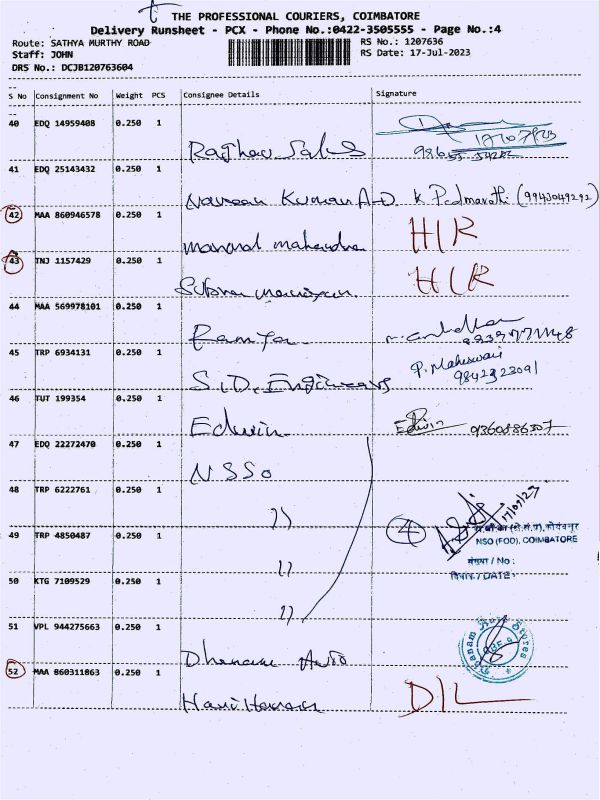 THE PROFESSIONAL COURIERS, COIMBATORE
Delivery Runsheet - PCX - Phone No.:0422-3505555 - Page No.:4
Route: SATHYA MURTHY ROAD
Staff: JOHN
DRS No.: DCJB120763604
RS No.: 1207636
RS Date: 17-Jul-2023
S No Consignment No Weight PCS Consignee Details Signature
40 EDQ 14959408 0.250 1 Raghav Sales
17/07/23
41 EDQ 25143432 0.250 1 Naveen Kumar A-D. K. Padmavathi (9943049292)
42 MAA 860946578 0.250 1 mahendra H/R
43 TNJ 1157429 0.250 1 H/R
44 MAA 569978101 0.250 1 Ramya
45 TRP 6934131 0.250 1 S.D. Engineers P. Maheswari
9842323091
46 TUT 199354 0.250 1 Edwin Edwin 9360886307
47 EDQ 22272470 0.250 1 NSSO
48 TRP 6222761 0.250 1 ''
17/07/23
49 TRP 4850487 0.250 1 '' 4
NSO (FOD), COIMBATORE
संख्या / No :
दिनांक / DATE:
50 KTG 7109529 0.250 1 ''
51 VPL 944275663 0.250 1 Dhanam Auto
Dhanam Auto Stores
CBE-9
52 MAA 860311863 0.250 1 D/L